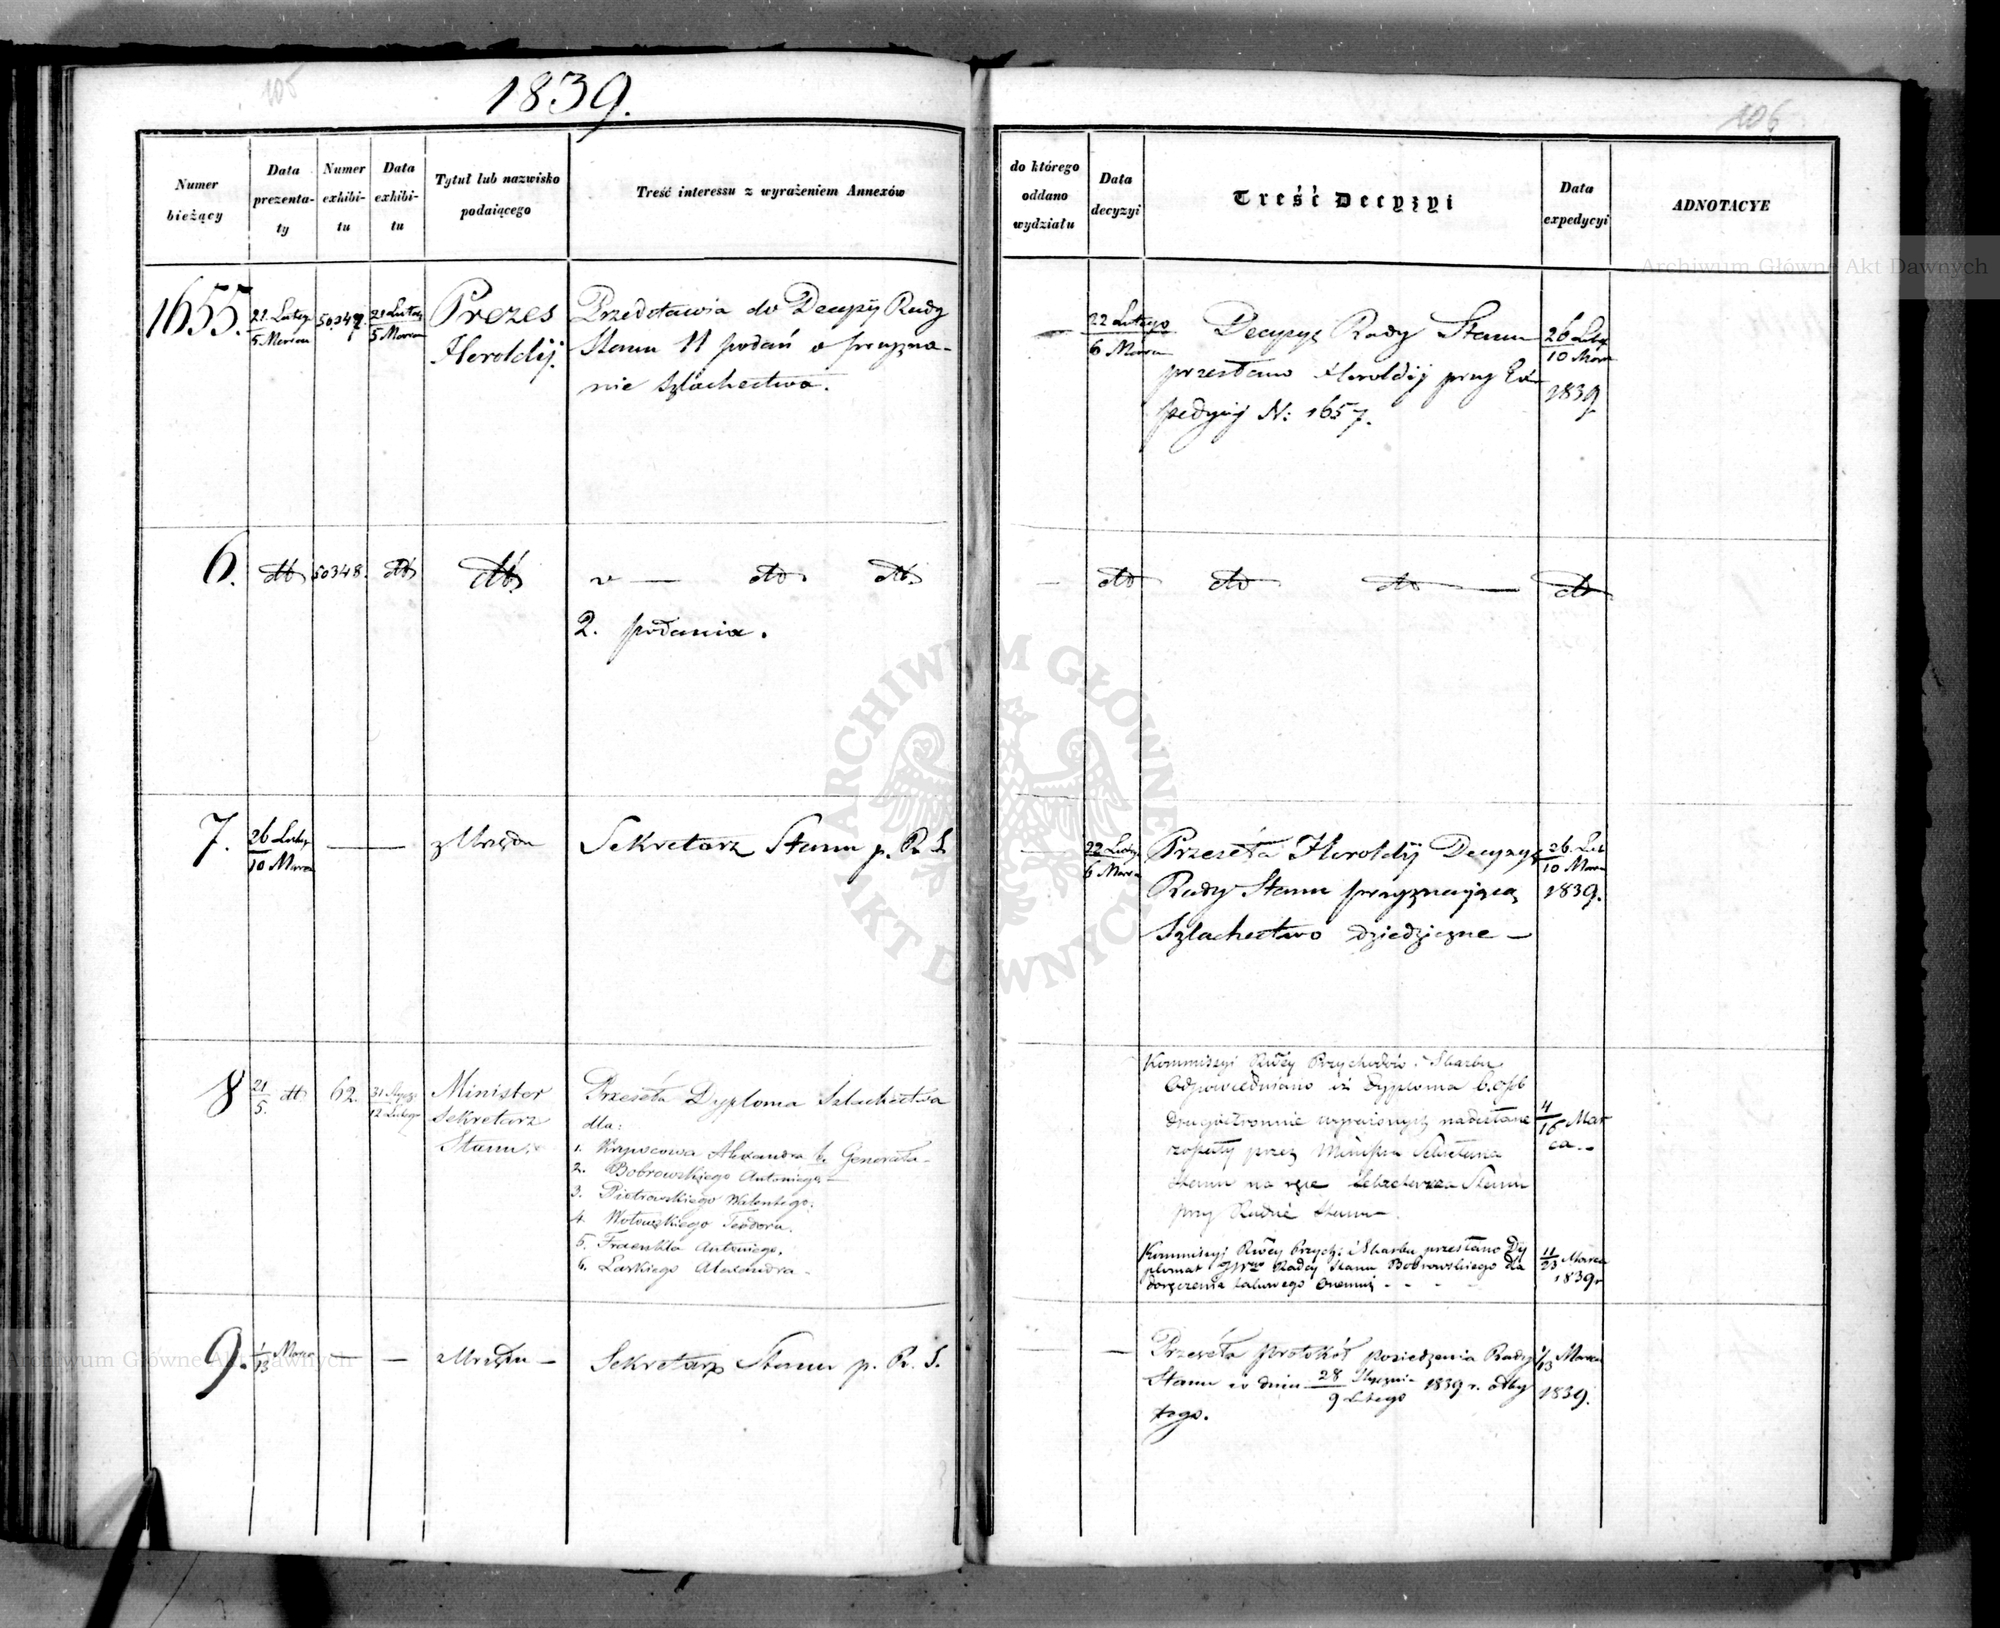 105
1839.
106
Numer bieżący
Data prezenta-ty
Numer exhibi-tu
Data exhibi-tu
Tytuł lub nazwisko podaiącego
Treść interessu z wyrażeniem Annexów
do którego oddano wydziału
Data decyzyi
Treść Decyzyi
Data expedycyi
ADNOTACYE
1655.
21 Lutego
5 Marca
50347.
21 Lutego
5 Marca
Prezes
Heroldij.
Przedstawia do Decyzij Rady
Stanu 11 podań o przyzna-
nie Szlachectwa.
22 Lutego
6 Marca
Decyzyę Rady Stanu
przesłano Heroldij przy Ex-
pedycij N: 1657.
26 Lutego
10 Marca
1839
6.
dto
50348.
dto
dto
dto dto
2. podania.
dto
dto dto
dto
7.
26 Lutego
10 Marca
z Urzędu
Sekretarz Stanu p. R. S.
22 Lutego
6 Marca
Przeseła Heroldij Decyzyę
Rady Stanu przyznającą
Szlachectwo dziedziczne —
26. Lut
10 Marca
1839.
8
21
5. dto
62.
31 Stycz:
12 Lutego
Minister
Sekretarz
Stanu.
Przeseła Dyploma Szlachectwa
dla:
1. Krywcowa Alexandra b. Generała
2. Bobrowskiego Antoniego
3. Pietrowskiego Walentego.
4. Wołowskiego Teodora.
5. Fraenkla Antoniego.
6. Laskiego Alexandra
Kommissyi Rźwéy Przychodów i Skarbu
Odpowiedziano iż Dyploma 6. osób
drugostronnie wyrażonych nadesłane
zostały przez Ministra Sekretarza
Stanu na ręce Sekretarza Stanu
przy Radzie Stanu
4
16 Mar
ca
Kommissyi Rźwéy Przych: i Skarbu przesłano Dy
plomat Radcy Stanu Bobrowskiego dla
doręczenia takowego Onemuż
11
23 Marca
1839 r
9.
1
13 Marca
z Urzędu —
Sekretarz Stanu p. R. S.
Przeseła protokół posiedzenia Rady
Stanu w dniu 28 Stycznia
9 Lutego 1839 r. odby
tego.
1
13 Marca
1839.
ARCHIWUM GŁÓWNE AKT DAWNYCH
Archiwum Główne Akt Dawnych
Archiwum Główne Akt Dawnych